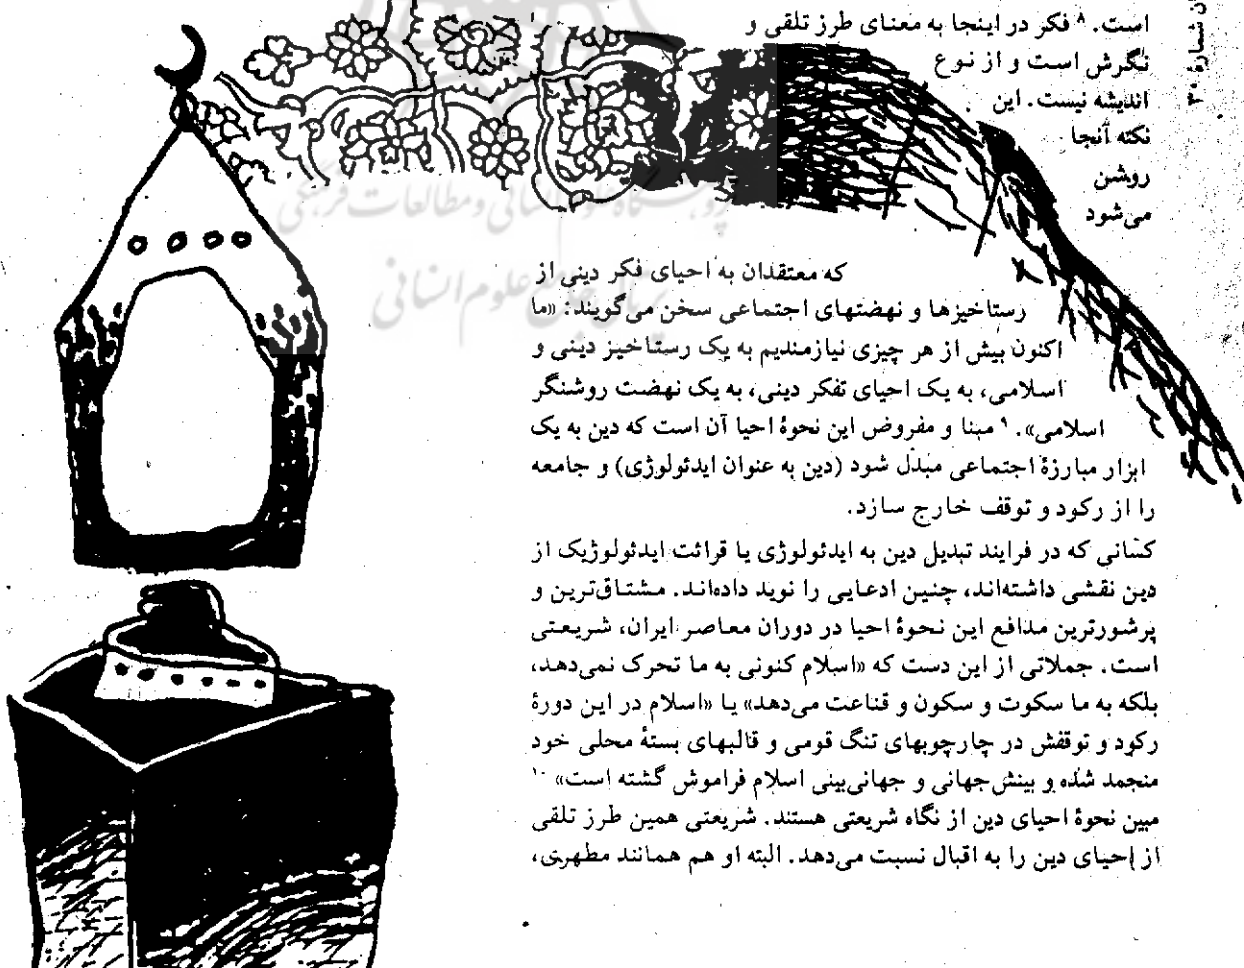 است. ۸ فکر در اینجا به معنای طرز تلقی و
نگرش است و از نوع
اندیشه نیست. این
نکته آنجا
روشن
می‌شود
که معتقدان به احیای فکر دینی از
رستاخیزها و نهضتهای اجتماعی سخن می‌گویند: «ما
اکنون بیش از هر چیزی نیازمندیم به یک رستاخیز دینی و
اسلامی، به یک احیای تفکر دینی، به یک نهضت روشنگر
اسلامی». ۹ مبنا و مفروض این نحوهٔ احیا آن است که دین به یک
ابزار مبارزهٔ اجتماعی مبدّل شود (دین به عنوان ایدئولوژی) و جامعه
را از رکود و توقف خارج سازد.
کسانی که در فرایند تبدیل دین به ایدئولوژی یا قرائت ایدئولوژیک از
دین نقشی داشته‌اند، چنین ادعایی را نوید داده‌اند. مشتاق‌ترین و
پرشورترین مدافع این نحوهٔ احیا در دوران معاصر ایران، شریعتی
است. جملاتی از این دست که «اسلام کنونی به ما تحرک نمی‌دهد،
بلکه به ما سکوت و سکون و قناعت می‌دهد» یا «اسلام در این دورهٔ
رکود و توقفش در چارچوبهای تنگ قومی و قالبهای بستهٔ محلی خود
منجمد شده و بینش جهانی و جهانی‌بینی اسلام فراموش گشته است» ۱۰
مبین نحوهٔ احیای دین از نگاه شریعتی هستند. شریعتی همین طرز تلقی
از احیای دین را به اقبال نسبت می‌دهد. البته او هم همانند مطهری،
شمارهٔ ۳۰
پژوهشگاه علوم انسانی و مطالعات فرهنگی
پرتال جامع علوم انسانی